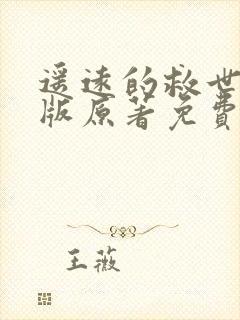 遥远的救世
版原著免费
王薇